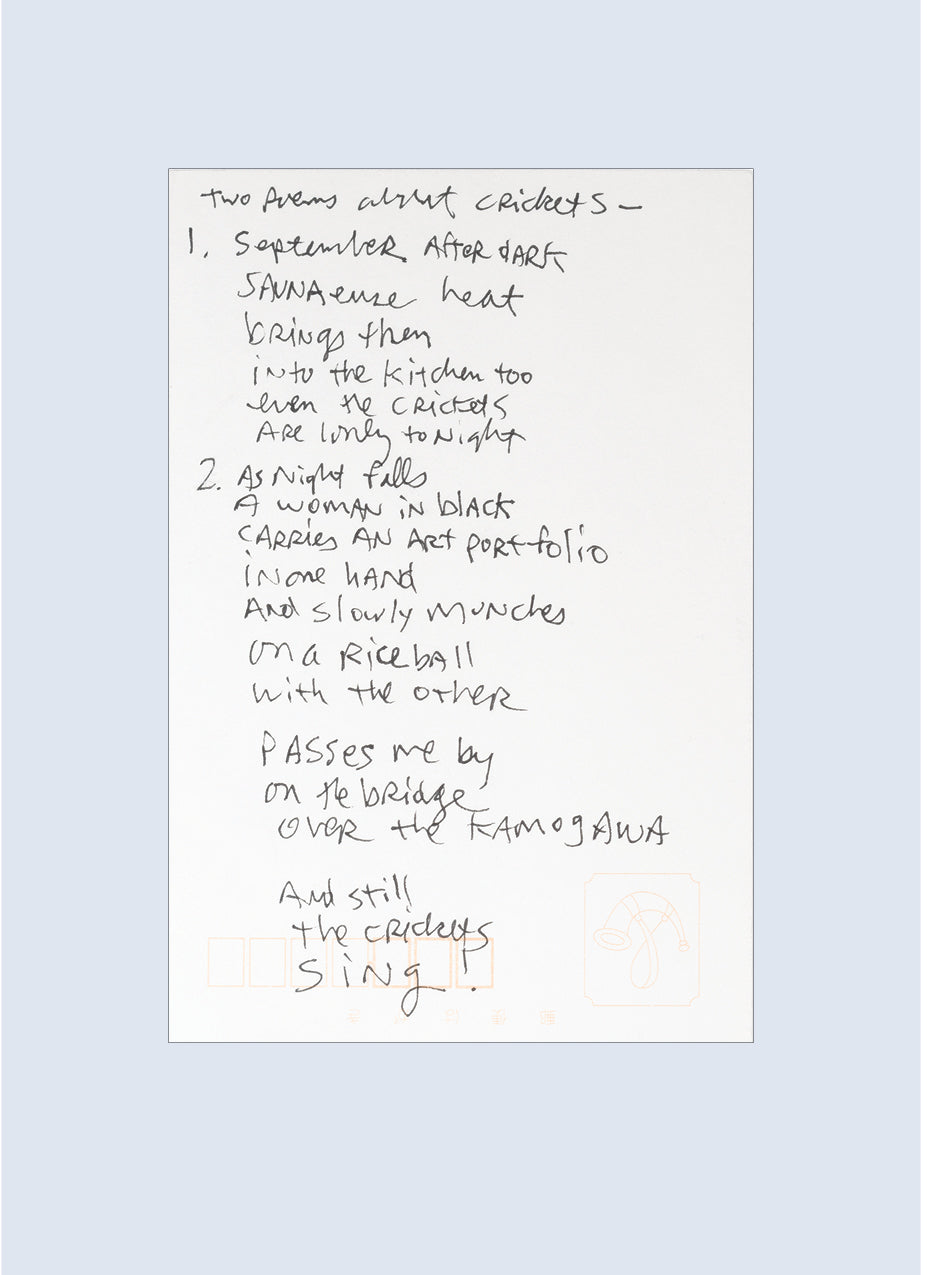 Two Poems about crickets –
1. September After dark
heat
brings them
into the kitchen too
even the crickets
Are lonely tonight
2. As Night falls
A woman in black
carries an art portfolio
in one hand
And slowly munches
on a rice ball
with the other
Passes me by
on the bridge
over the Kamogawa
And still
the crickets
sing!
郵便はがき